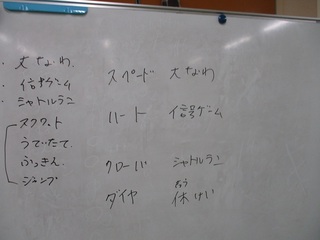 ・大なわ
・信号ゲーム
・シャトルラン
スクワット
うでたて
ふっきん
ジャンプ
スペード 大なわ
ハート 信号ゲーム
クローバ シャトルラン
ダイヤ 休けい